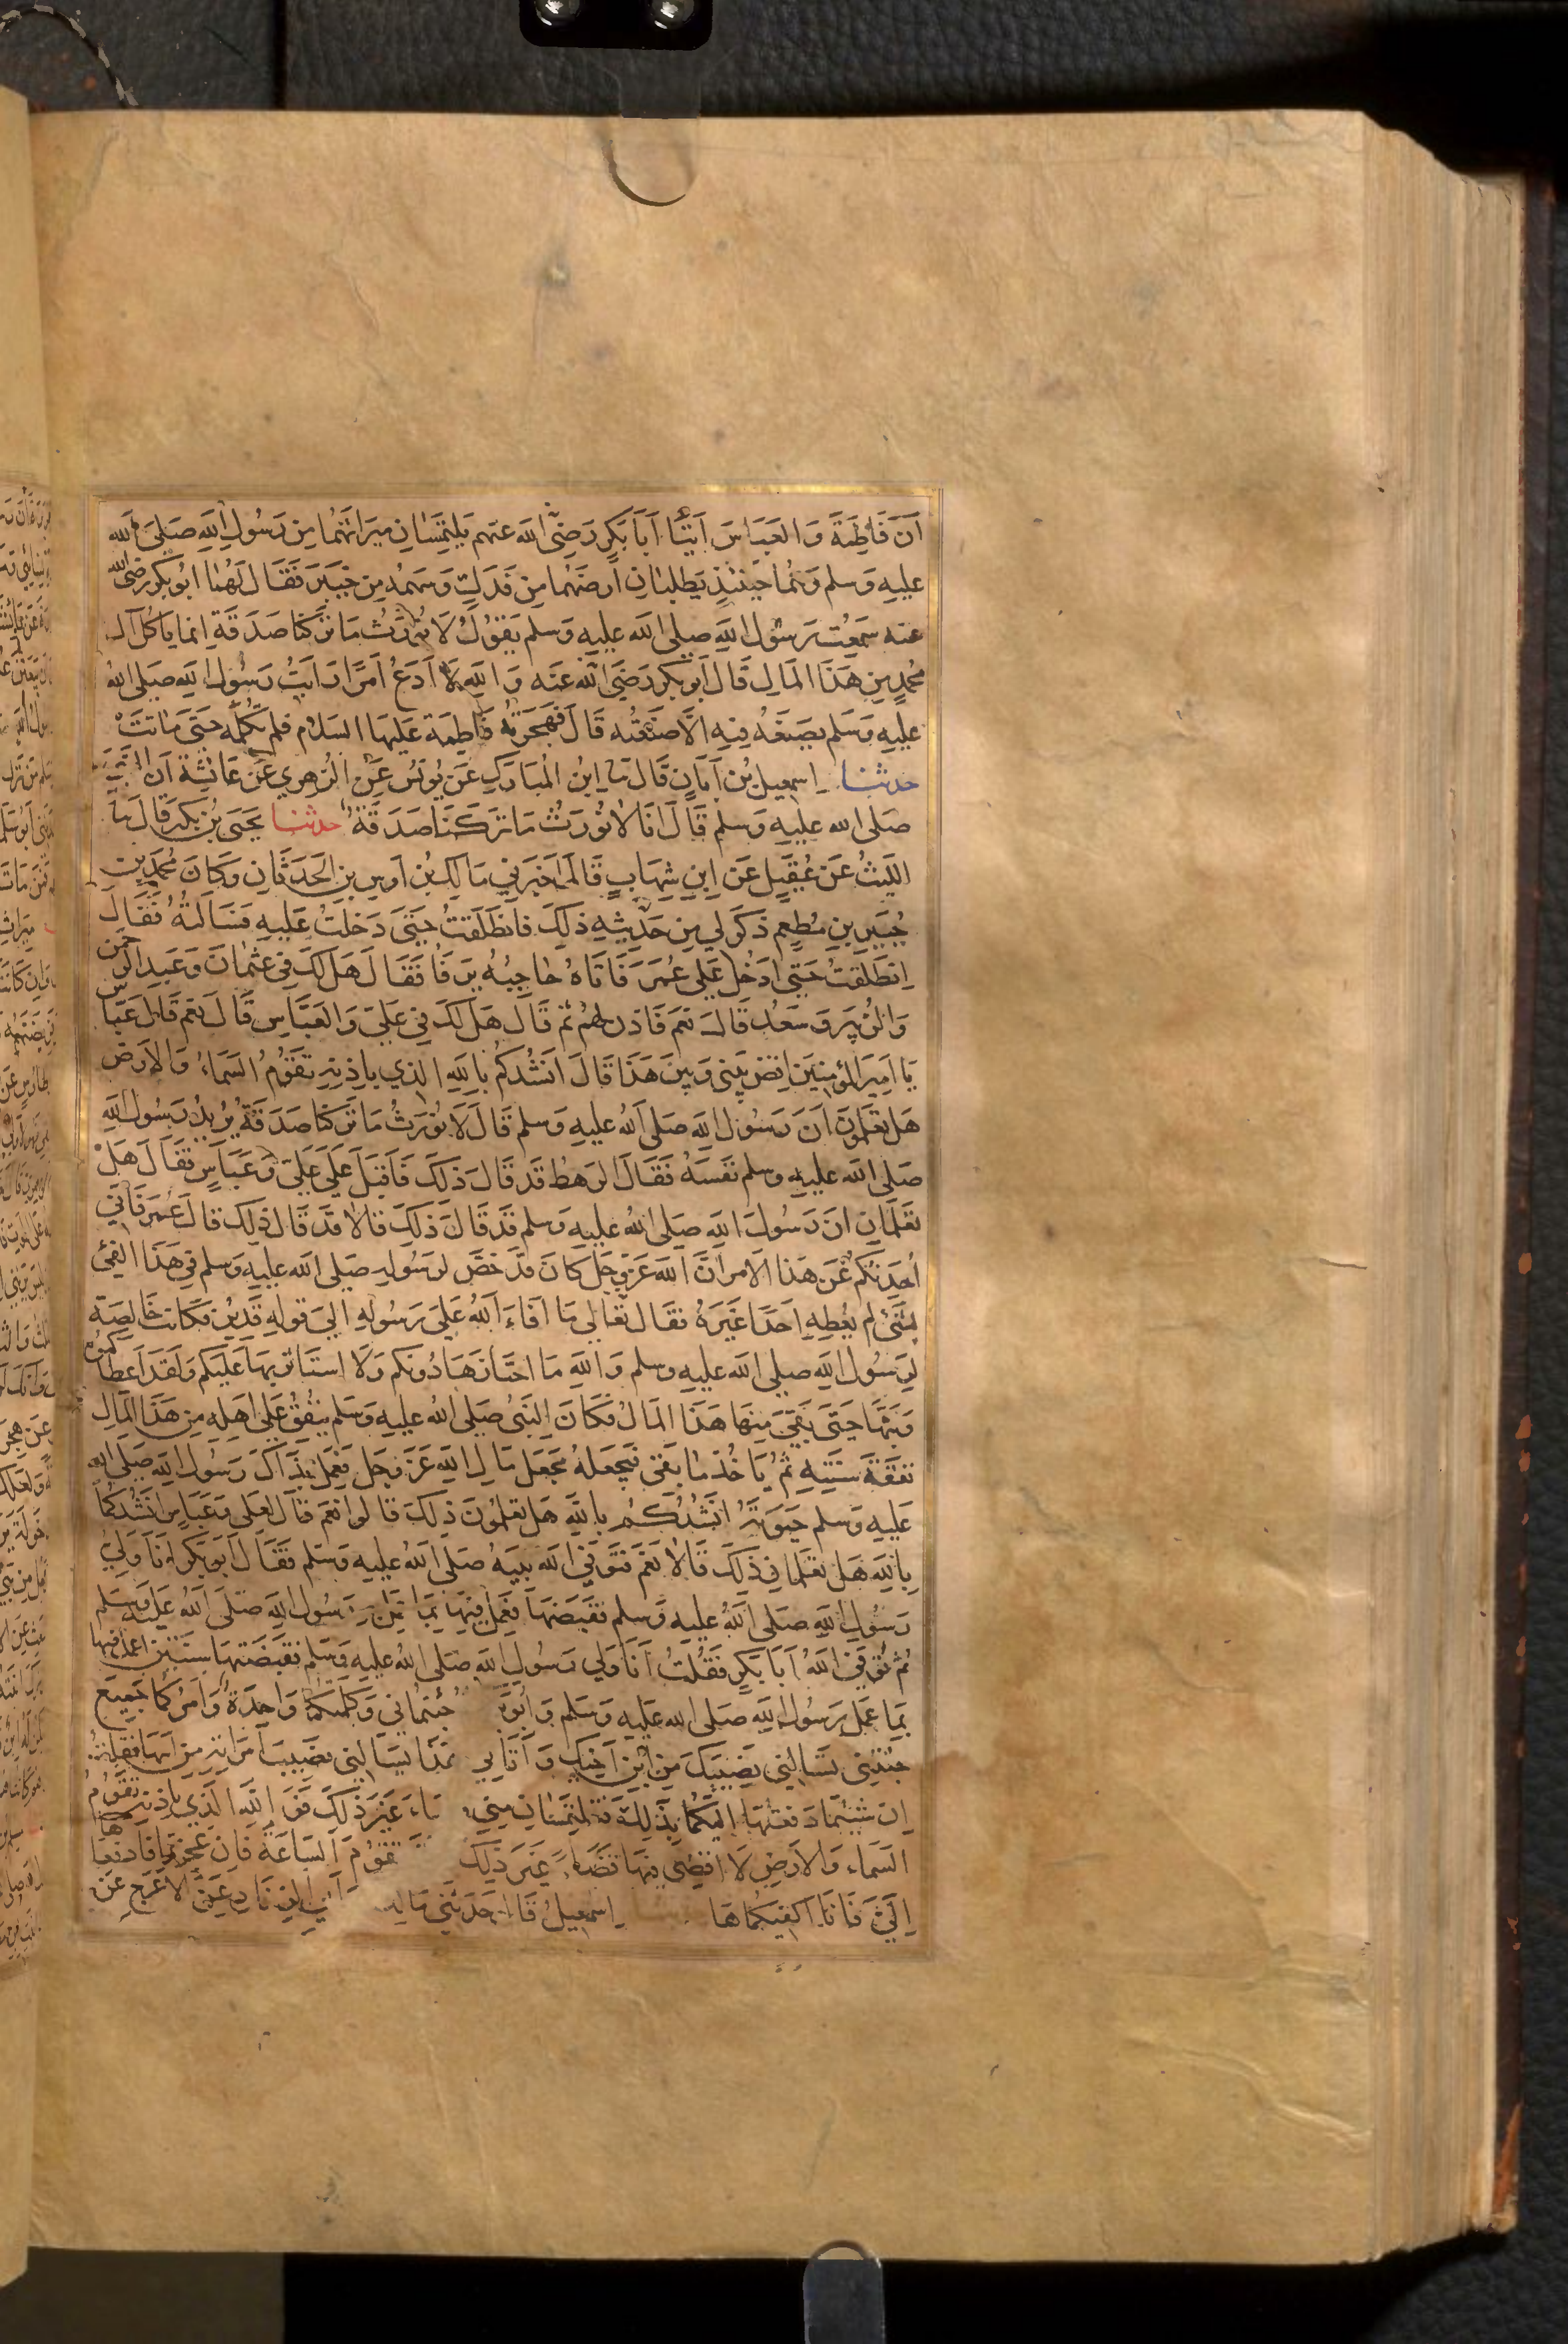 أن فاطمة والعباس أتيا أبا بكر رضي الله عنهم يلتمسان ميراثهما من رسول الله صلى الله
عليه وسلم وهما حينئذ يطلبان أرضهما من فدك وسهمه من خيبر فقال لهما ابو بكر رضي الله
عنه سمعت رسول الله صلى الله عليه وسلم يقول لا نورث ما تركنا صدقة انما ياكل آل
محمد من هذا المال قال ابو بكر رضي الله عنه والله لا ادع امرا رايت رسول الله صلى الله
عليه وسلم يصنعه فيه الا صنعته قال فهجرته فاطمة عليها السلام فلم تكلمه حتى ماتت
حدثنا اسمعيل بن أبان قال نا ابن المبارك عن يونس عن الزهري عن عائشة ان النبي
صلى الله عليه وسلم قال انا لا نورث ما تركنا صدقة حدثنا يحيى بن بكير قال نا
الليث عن عقيل عن ابن شهاب قال اخبرني مالك بن اوس بن الحدثان وكان محمد بن
جبير بن مطعم ذكر لي من حديثه ذلك فانطلقت حتى دخلت عليه فسالته فقال
انطلقت حتى ادخل على عمر فاتاه حاجبه يرفا فقال هل لك في عثمان وعبد الرحمن
والزبير وسعد قال نعم فاذن لهم ثم قال هل لك في علي والعباس قال نعم قال عباس
يا امير المؤمنين اقض بيني وبين هذا قال انشدكم بالله الذي باذنه تقوم السماء والارض
هل تعلمون ان رسول الله صلى الله عليه وسلم قال لا نورث ما تركنا صدقة يريد رسول الله
صلى الله عليه وسلم نفسه فقال الرهط قد قال ذلك فاقبل على علي وعباس فقال هل
تعلمان ان رسول الله صلى الله عليه وسلم قد قال ذلك قالا قد قال ذلك قال عمر فاني
أحدثكم عن هذا الامر ان الله عز وجل كان قد خص لرسوله صلى الله عليه وسلم في هذا الفيئ
بشئ لم يعطه احدا غيره فقال تعالى ما افاء الله على رسوله الى قوله قدير فكانت خالصة
لرسول الله صلى الله عليه وسلم والله ما احتازها دونكم ولا استاثر بها عليكم ولقد اعطاكموه
وبثها حتى بقي منها هذا المال فكان النبي صلى الله عليه وسلم ينفق على اهله من هذا المال
نفقة سنته ثم ياخذ ما بقي فيجعله مجعل مال الله عز وجل فعمل بذاك رسول الله صلى الله
عليه وسلم حيوته انشدكم بالله هل تعلمون ذلك قالوا نعم قال لعلي وعباس انشدكما
بالله هل تعلما في ذلك قالا نعم فتوفي الله نبيه صلى الله عليه وسلم فقال ابو بكر انا ولي
رسول الله صلى الله عليه وسلم فقبضها فعمل فيها بما عمل رسول الله صلى الله عليه وسلم
ثم توفي الله ابا بكر فقلت انا ولي رسول الله صلى الله عليه وسلم فقبضتها سنتين اعمل فيها
بما عمل رسول الله صلى الله عليه وسلم وابو جئتماني وكلمتكما واحدة وامركما جميع
جئتني تسالني نصيبك من ابن اخيك واتاني هذا يسالني نصيب امراته من ابيها فقلت
ان شئتما دفعتها اليكما بذلك فتلتمسان مني قضاء غير ذلك فو الله الذي باذنه تقوم
السماء والارض لا اقضي فيها قضاء غير ذلك تقوم الساعة فان عجزتما فادفعاها
الي فانا اكفيكماها اسمعيل قال حدثني مالك أبي الزناد عن الاعرج عن